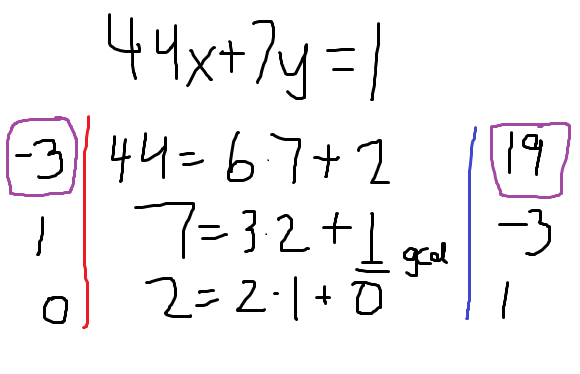 44x+7y=1
-3 44=6·7+2 19
1 7=3·2+1 gcd -3
0 2=2·1+0 1